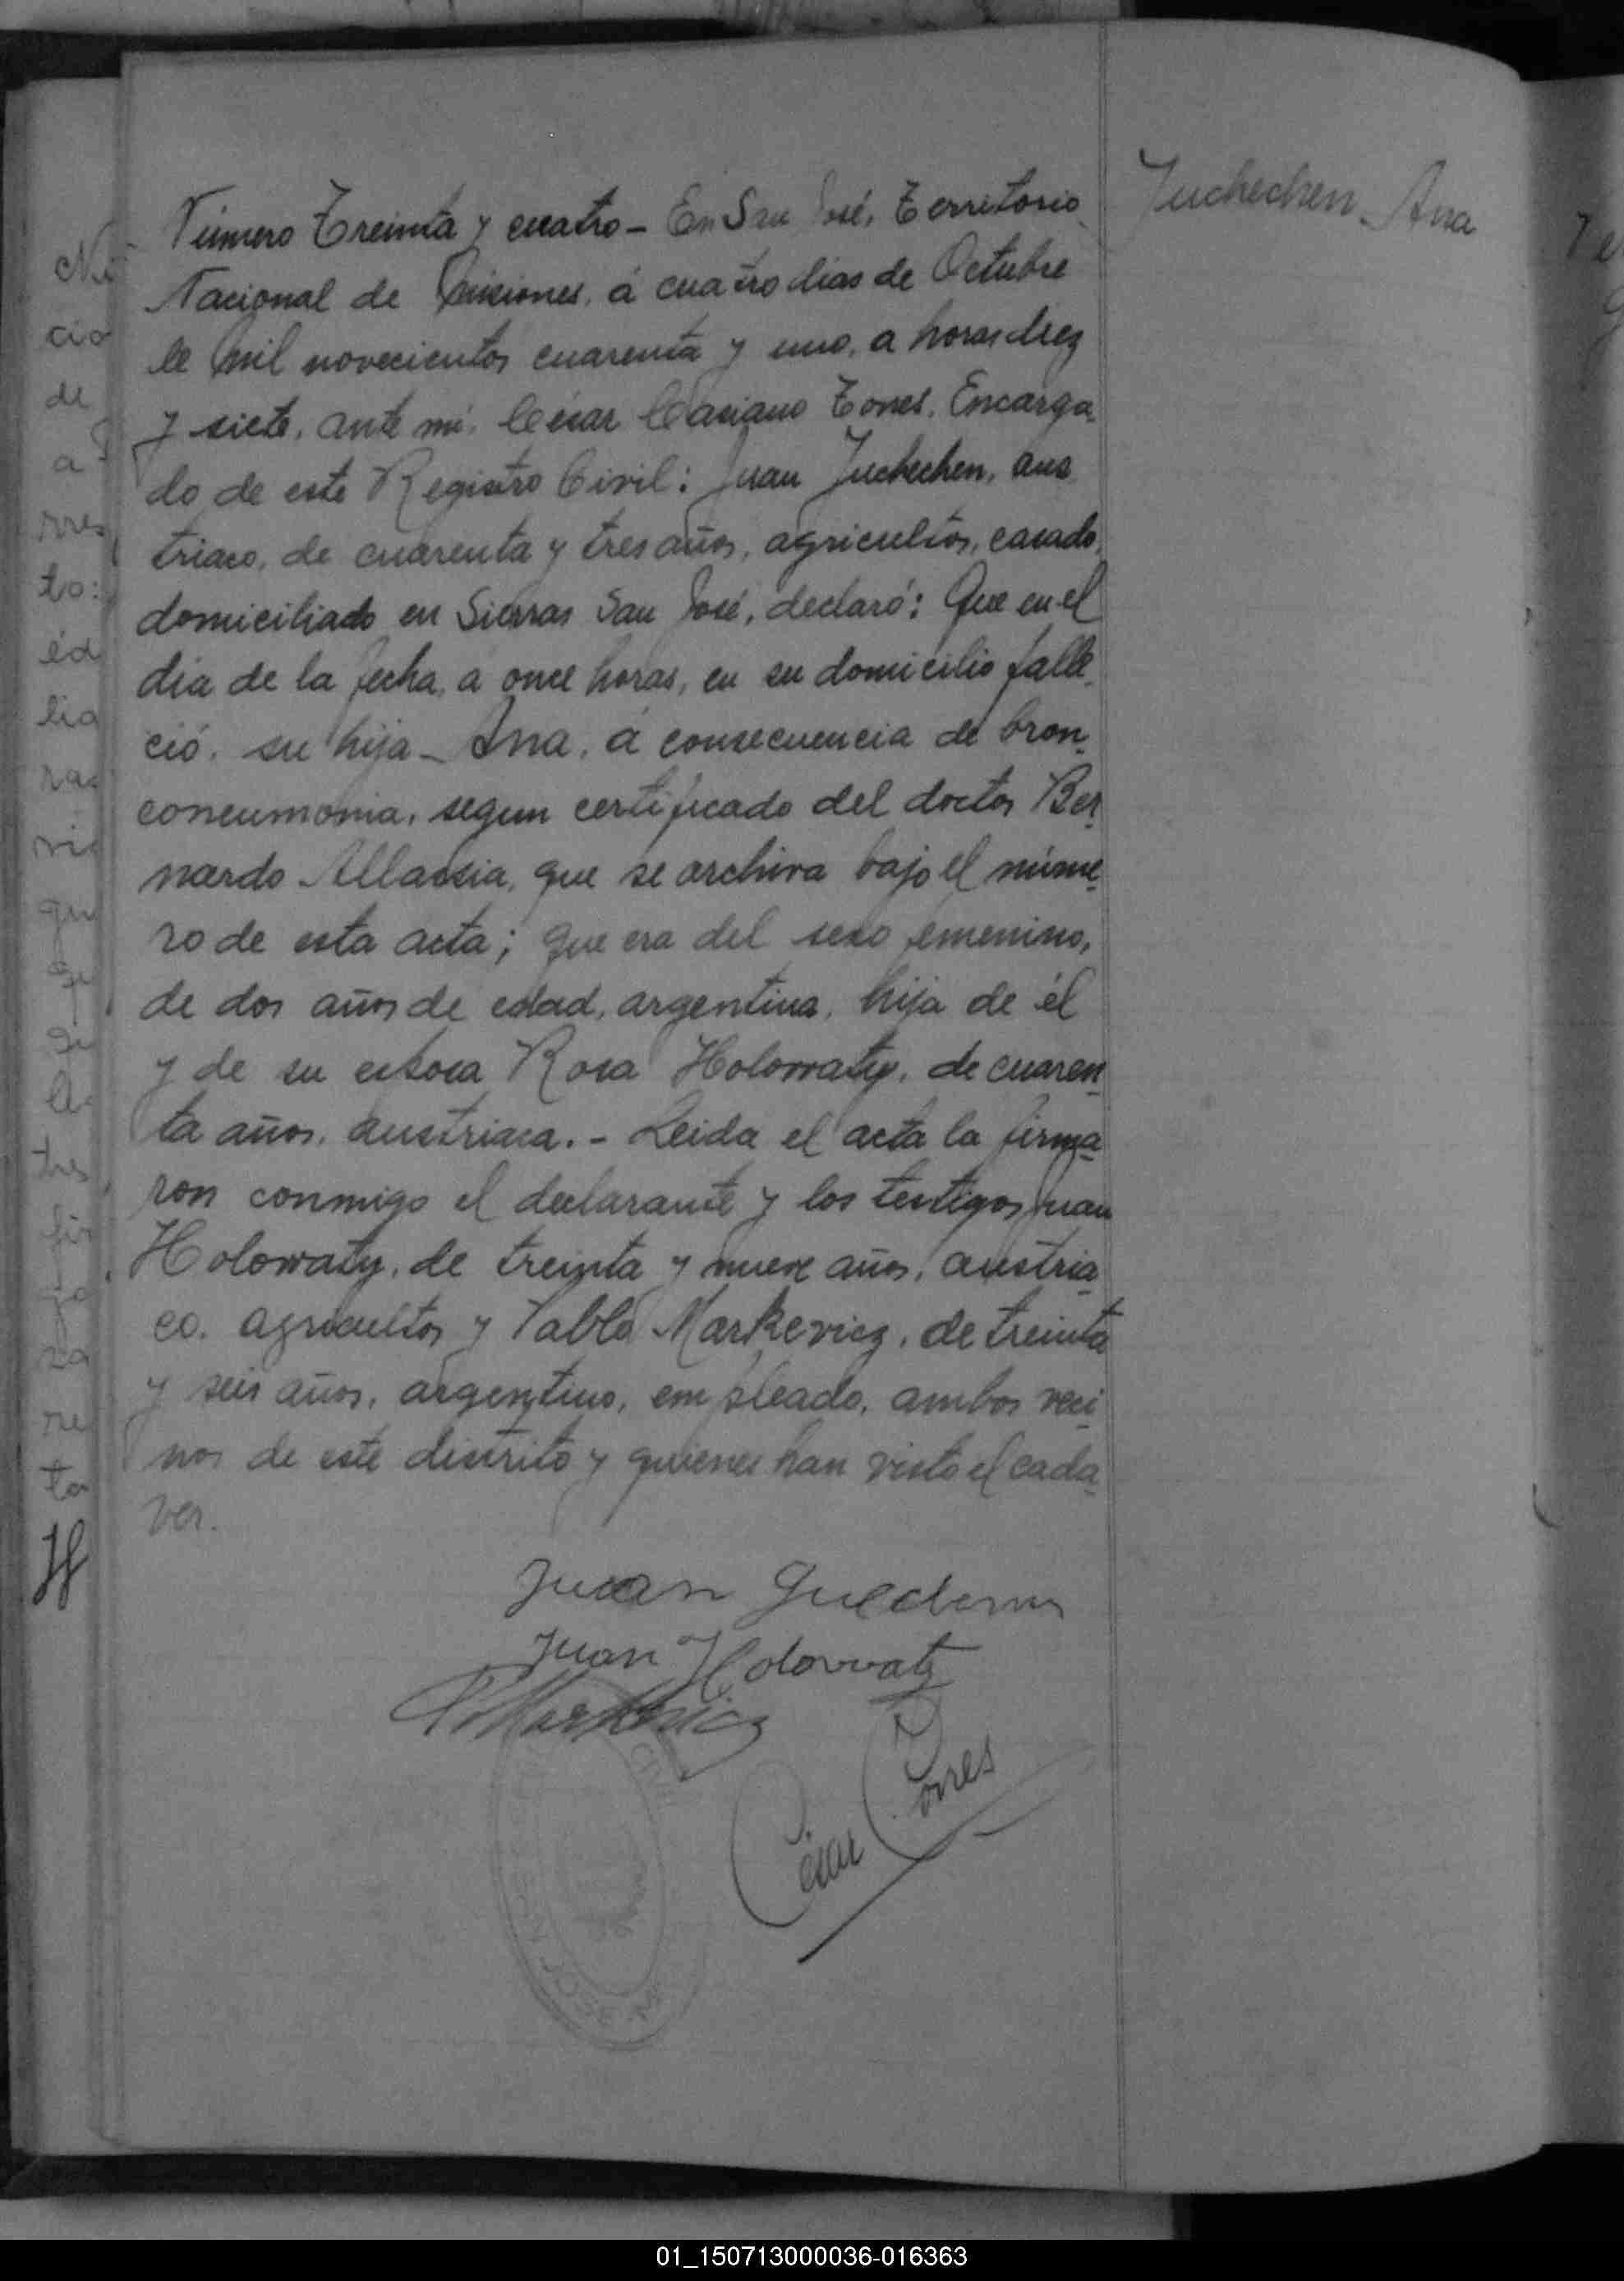 Juchechen Ana
Número Treinta y cuatro - En San José, Territorio
Nacional de Misiones, á cuatro dias de Octubre
de mil novecientos cuarenta y uno, a horas diez
y siete, ante mi, César Casiano Torres, Encarga-
do de este Registro Civil: Juan Juchechen, aus-
triaco, de cuarenta y tres años, agricultor, casado,
domiciliado en Sierras San José, declaró: Que en el
dia de la fecha, a once horas, en su domicilio falle-
ció, su hija - Ana, á consecuencia de bron-
coneumonia, segun certificado del doctor Ber-
nardo Allassia, que se archiva bajo el núme-
ro de esta acta; que era del sexo femenino,
de dos años de edad, argentina, hija de él
y de su esposa Rosa Holowaty, de cuaren-
ta años, austriaca. - Leida el acta la firma-
ron conmigo el declarante y los testigos Juan
Holowaty, de treinta y nueve años, austria-
co, agricultor y Pablo Markevicz, de treinta
y seis años, argentino, empleado, ambos veci-
nos de este distrito y quienes han visto el cada-
ver.
Juan
Juan Holowaty
P. Markevicz
César C. Torres
01_150713000036-016363